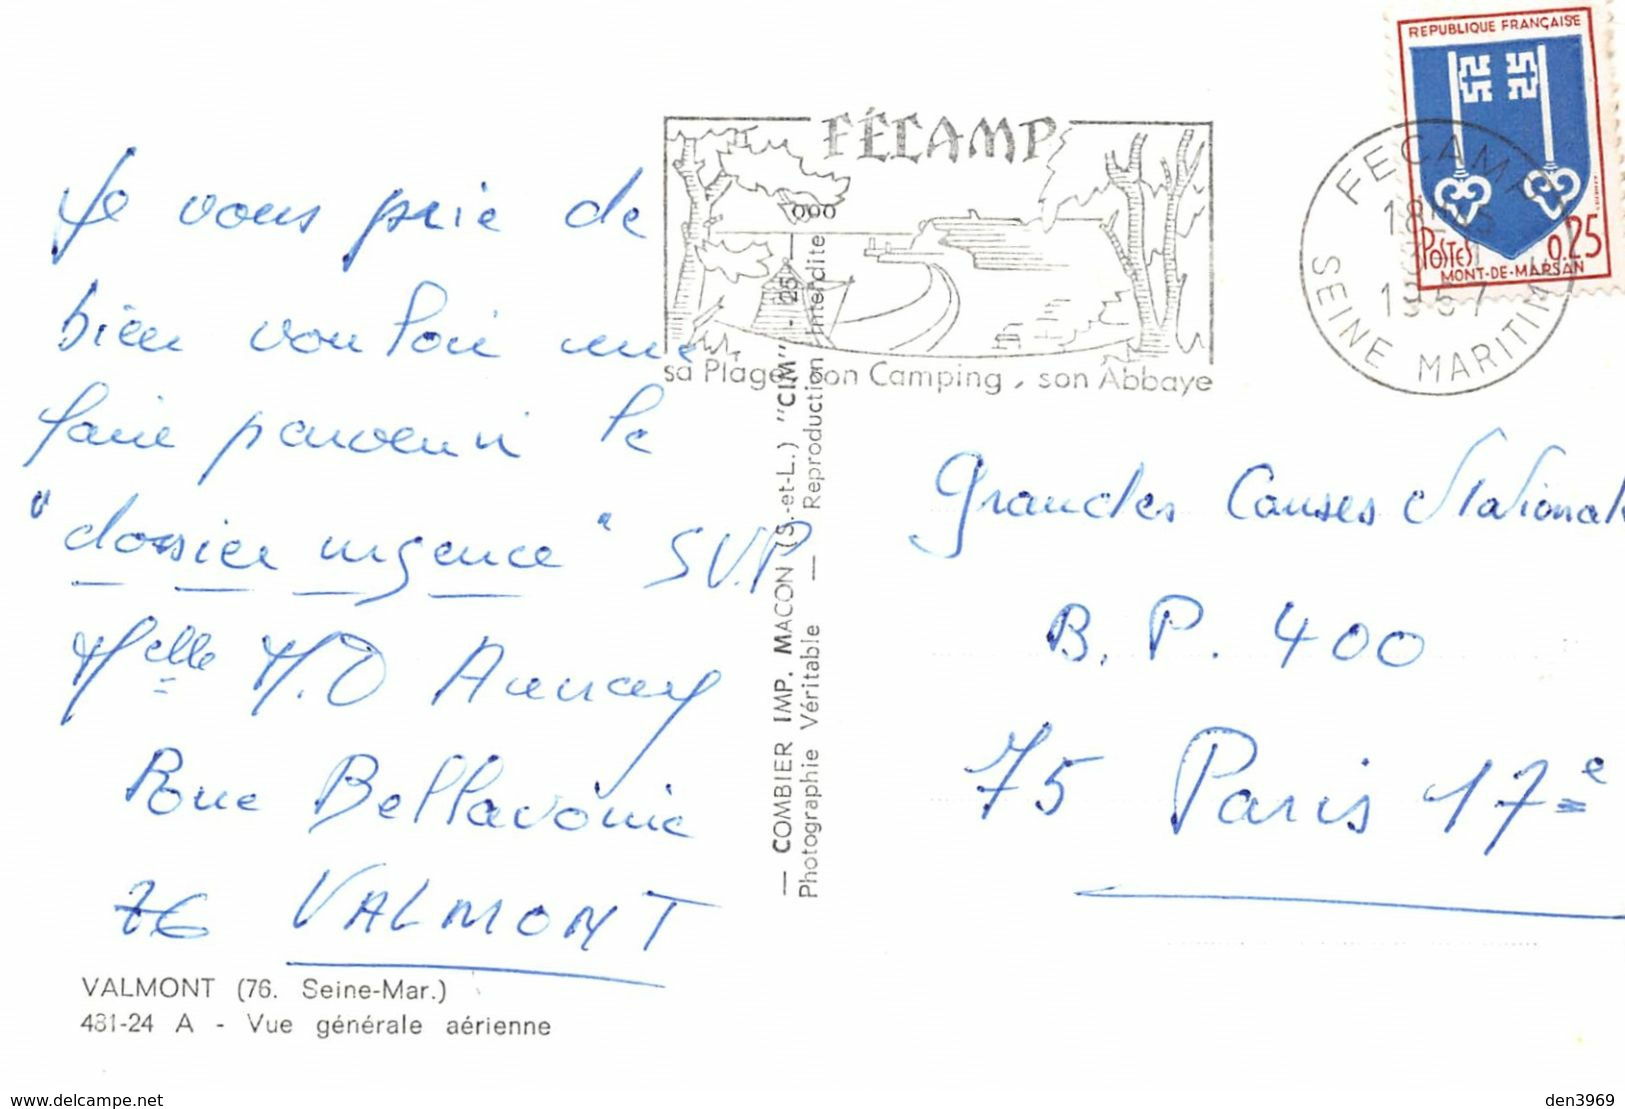 Je vous prie de
bien vouloir me
faire parvenir le
"dossier urgence" SVP
Melle M.O Aunay
Rue Bellavoine
76 VALMONT
VALMONT (76. Seine-Mar.)
481-24 A - Vue générale aérienne
— COMBIER IMP. MACON (S.-et-L.) "CIM" - 25 — 000
Photographie Véritable — Reproduction Interdite
FÉCAMP
sa Plage, son Camping, son Abbaye
FECAMP
1967
SEINE MARITIME
REPUBLIQUE FRANÇAISE
POSTES 0,25
MONT-DE-MARSAN
Grandes Causes Nationales
B. P. 400
75 Paris 17e
www.delcampe.net
den3969